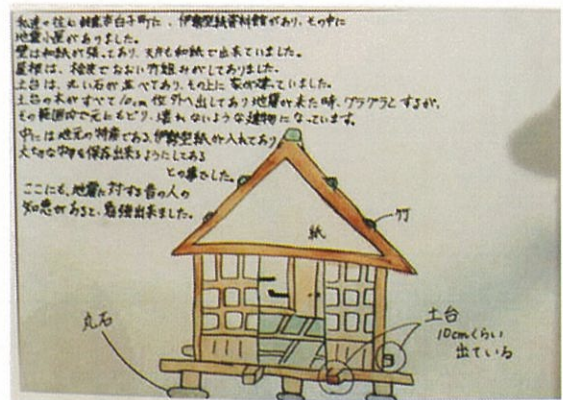 私達の住む鈴鹿市白子町に、伊勢型紙資料館があり、その中に
地震小屋がありました。
壁は和紙が張ってあり、天井も和紙で出来ていました。
屋根は、桧皮でおおい竹組みがしてありました。
土台は、丸い石が並べてあり、その上に家が建っていました。
土台の木がすべて10cm位外へ出してあり地震が来た時、グラグラとするが、
その範囲内で元にもどり、壊れないような建物になっています。
中には地元の特産である、伊勢型紙が入れてあり
大切な物を保存出来るようにしてある
との事でした。
ここにも、地震に対する昔の人の
知恵があると、勉強出来ました。
紙
竹
丸石
土台
10cmくらい
出ている